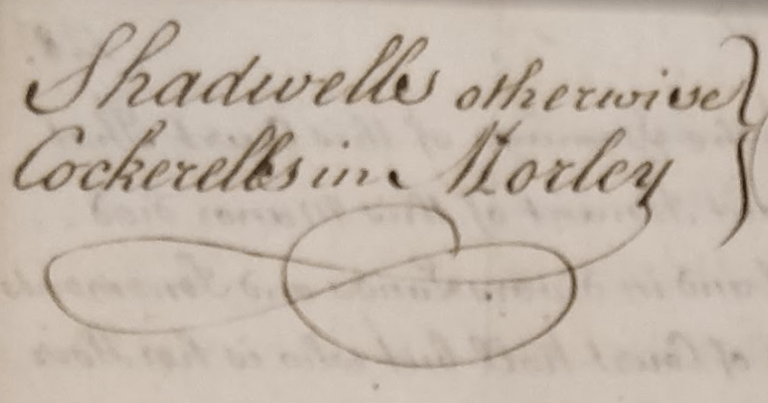 Shadwells otherwise
Cockerells in Morley